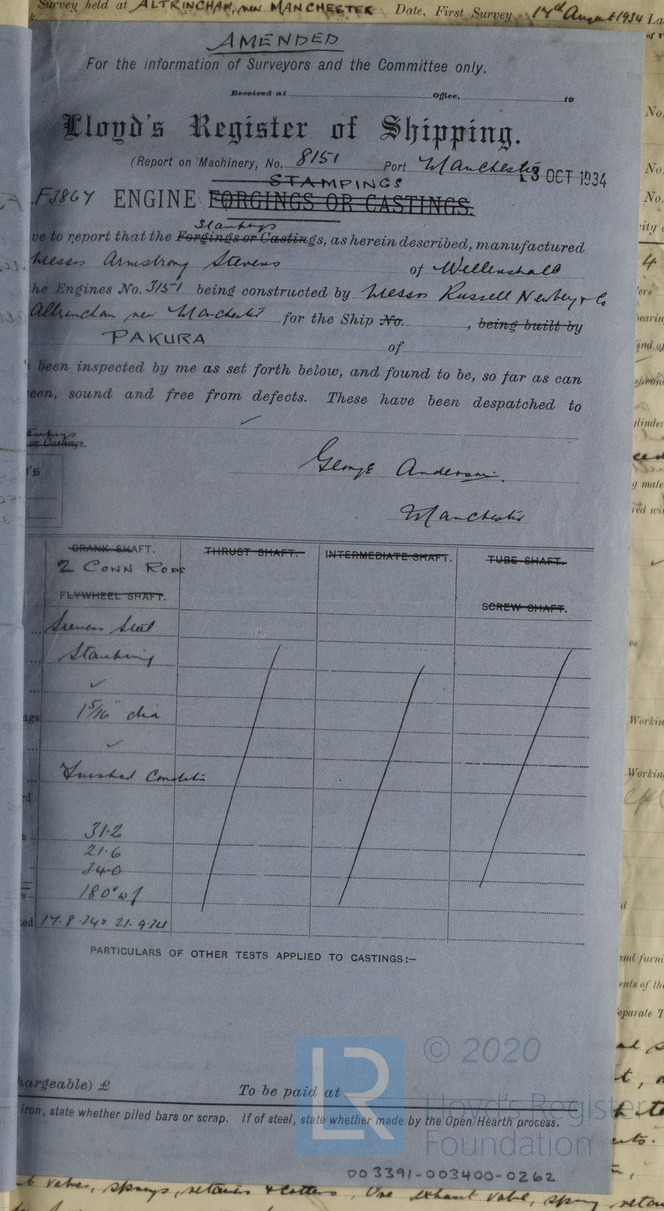 Survey held at ALTRINCHAM, near MANCHESTER Date, First Survey 17th August 1934 La
AMENDED
For the information of Surveyors and the Committee only.
Received at Office, 19
Lloyd's Register of Shipping.
(Report on Machinery, No. 8151 Port Manchester 13 OCT 1934
STAMPINGS
F3864 ENGINE FORGINGS OR CASTINGS.
Stampings
ve to report that the Forgings or Castings, as herein described, manufactured
Messrs Armstrong Stevens of Willenhall
he Engines No. 3151 being constructed by Messrs Russell Newbery & Co
Altrincham, near Manchester for the Ship No. , being built by
PAKURA of
been inspected by me as set forth below, and found to be, so far as can
een, sound and free from defects. These have been despatched to
or Castings.
George Anderson.
Manchester
CRANK SHAFT. THRUST SHAFT. INTERMEDIATE SHAFT. TUBE SHAFT.
2 CONN RODS
FLYWHEEL SHAFT. SCREW SHAFT.
Siemens Steel
Stamping
✓
1 5/16" dia
✓
Finished Condition
31.2
21.6
34.0
180°
17.8.34 21.9.34
PARTICULARS OF OTHER TESTS APPLIED TO CASTINGS:—
hargeable) £ To be paid at
iron, state whether piled bars or scrap. If of steel, state whether made by the Open Hearth process.
LR
© 2020
Lloyd's Register
Foundation
003391-003400-0262
t valve, springs, retainers & cotters, One exhaust valve, spring retainer